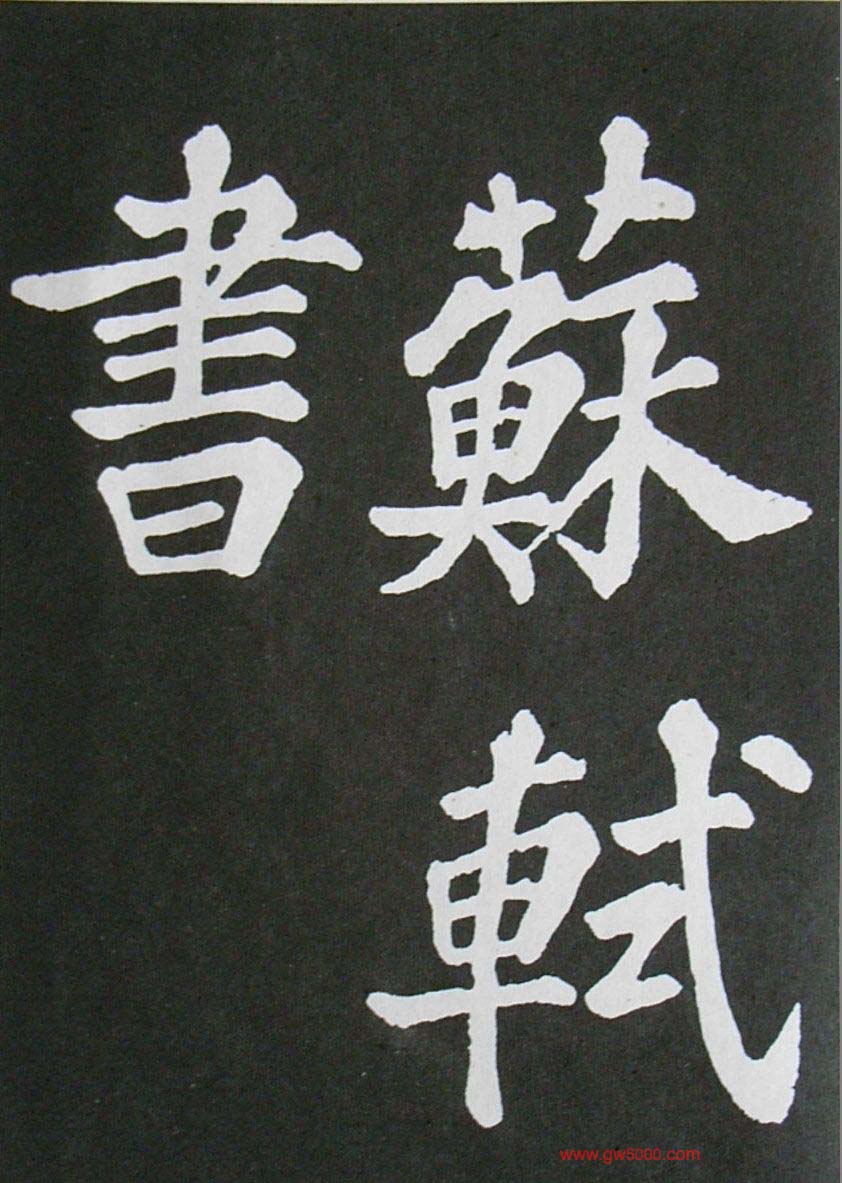 蘇軾
書
www.gw5000.com